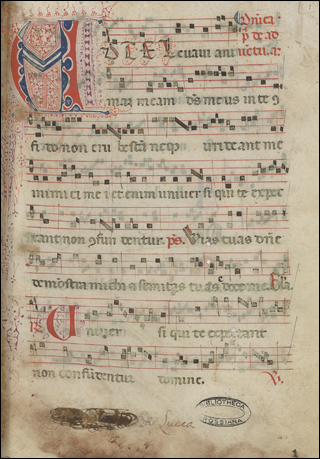 Dñica
p de ad
uentu.
TE Leuaui ani
mam meam ds meus in te ɔ
fido non eru bescã neq; irri deant me
inimi ci me i et enim univer si qui te expec
tant non ɔfun dentur. ps. Vias tuas dñe
demonstra michi et semitas tuas edoce me. Gla.
Univer si qui te expectant
non confudentur domine. V.
Lucca
BIBLIOTHECA
ROSSIANA
1